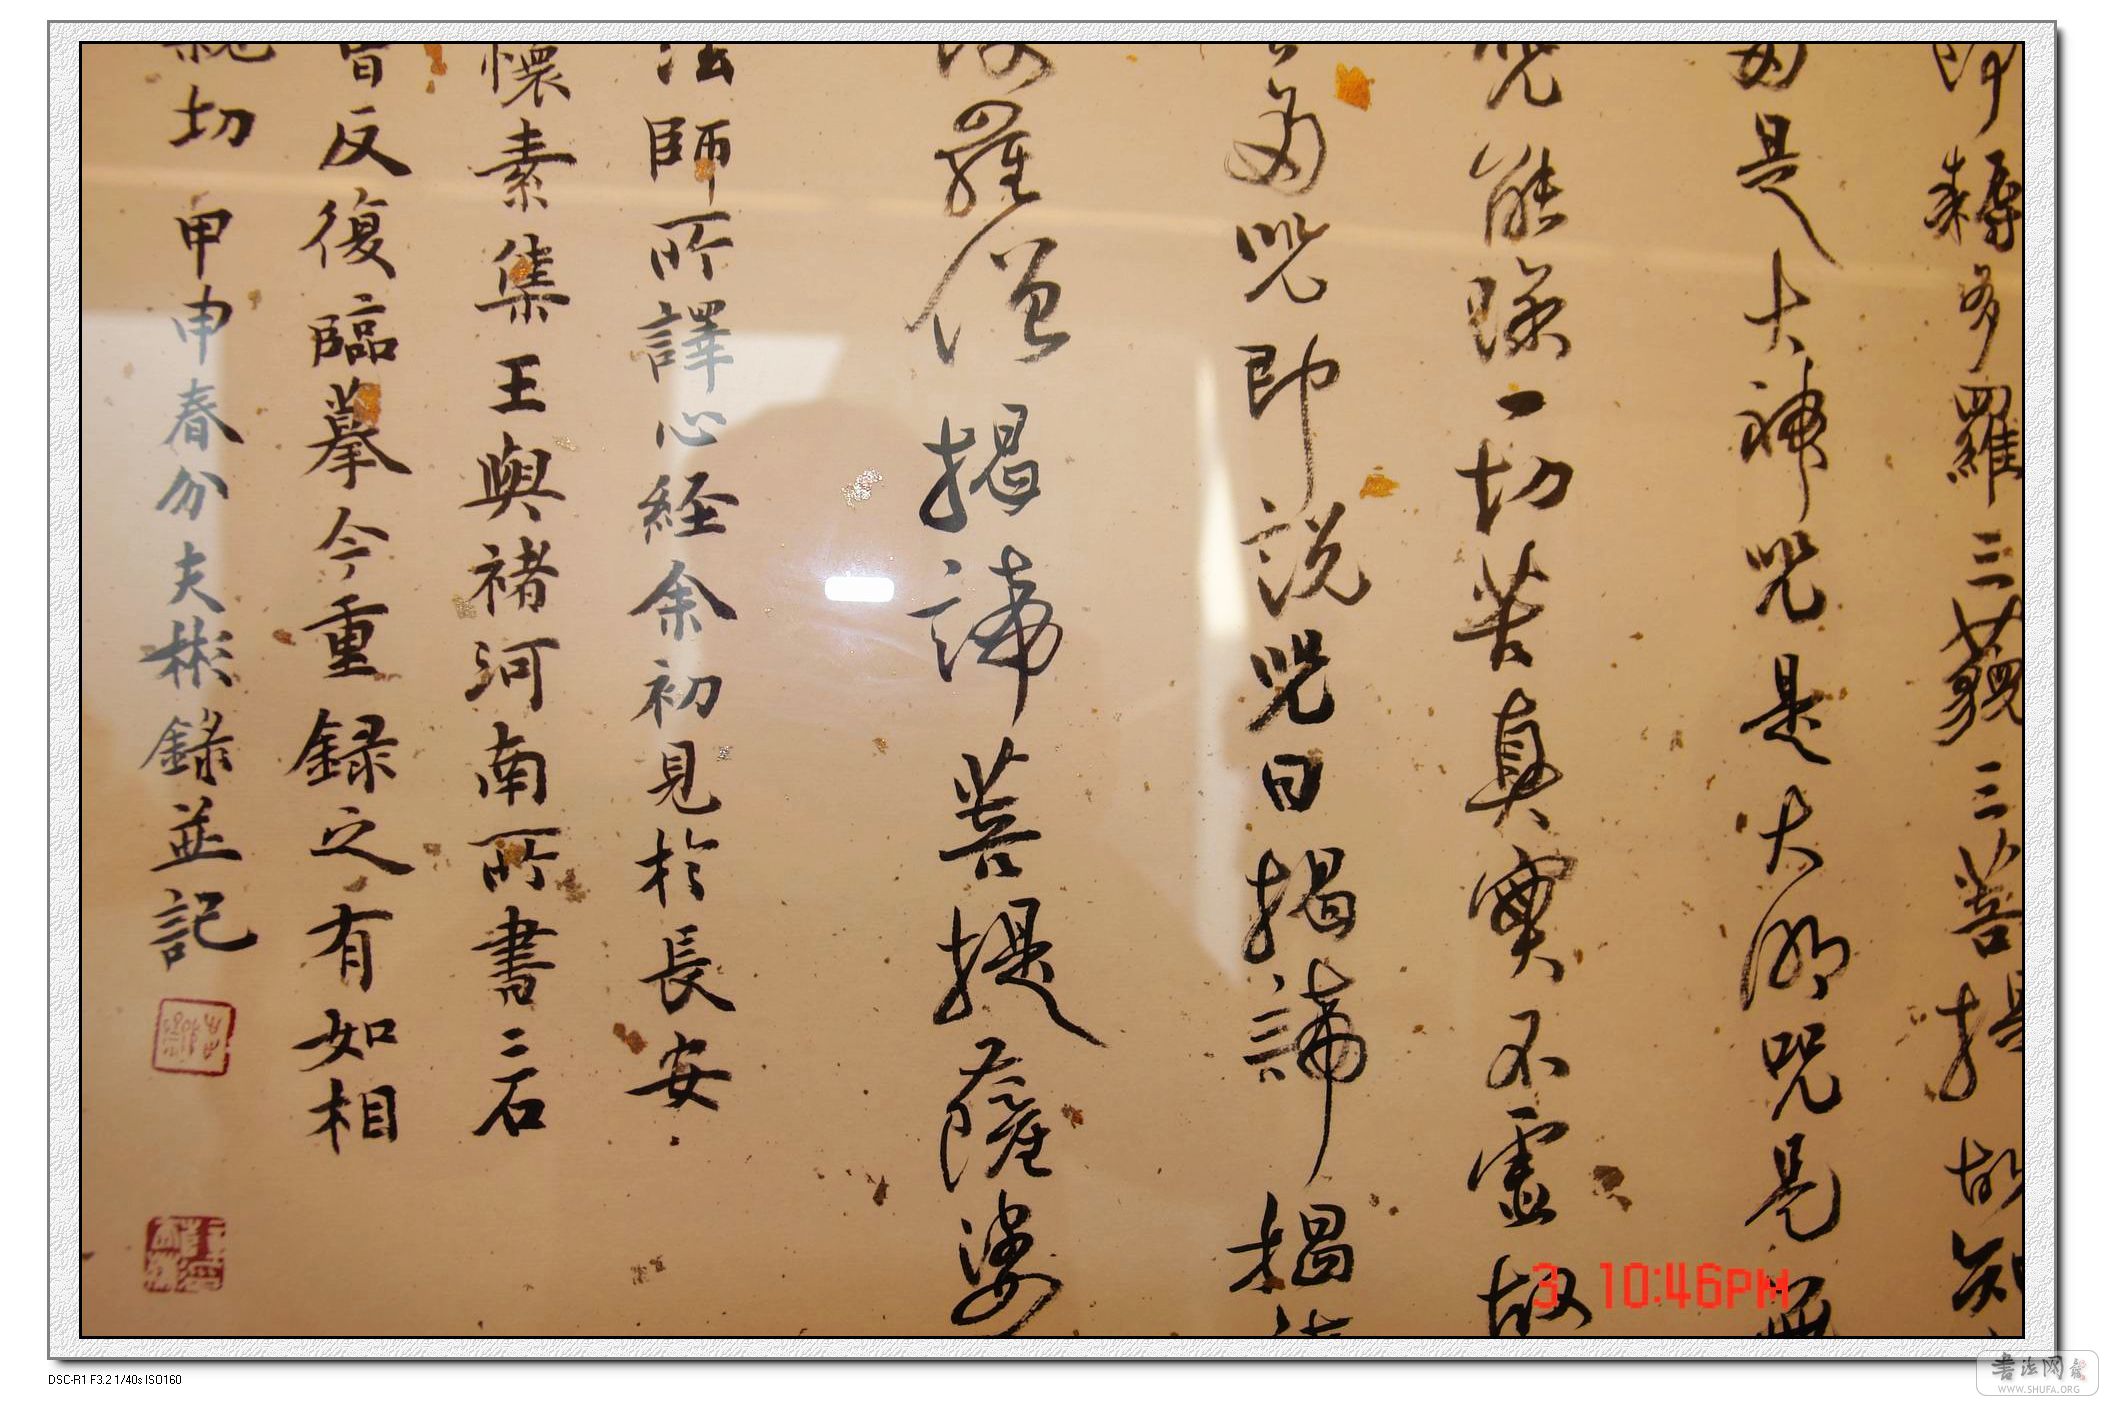 耨多羅三藐三菩提故知
是大神咒是大明咒是無
咒能除一切苦真實不虛故
多咒即說咒曰揭諦揭
羅僧揭諦菩提薩婆
法師所譯心經余初見於長安
懷素集王與褚河南所書三石
皆反復臨摹今重錄之有如相
切 甲申春分夫彬錄並記
3 10:46PM
DSC-R1 F3.2 1/40s ISO160
書法网
WWW.SHUFA.ORG